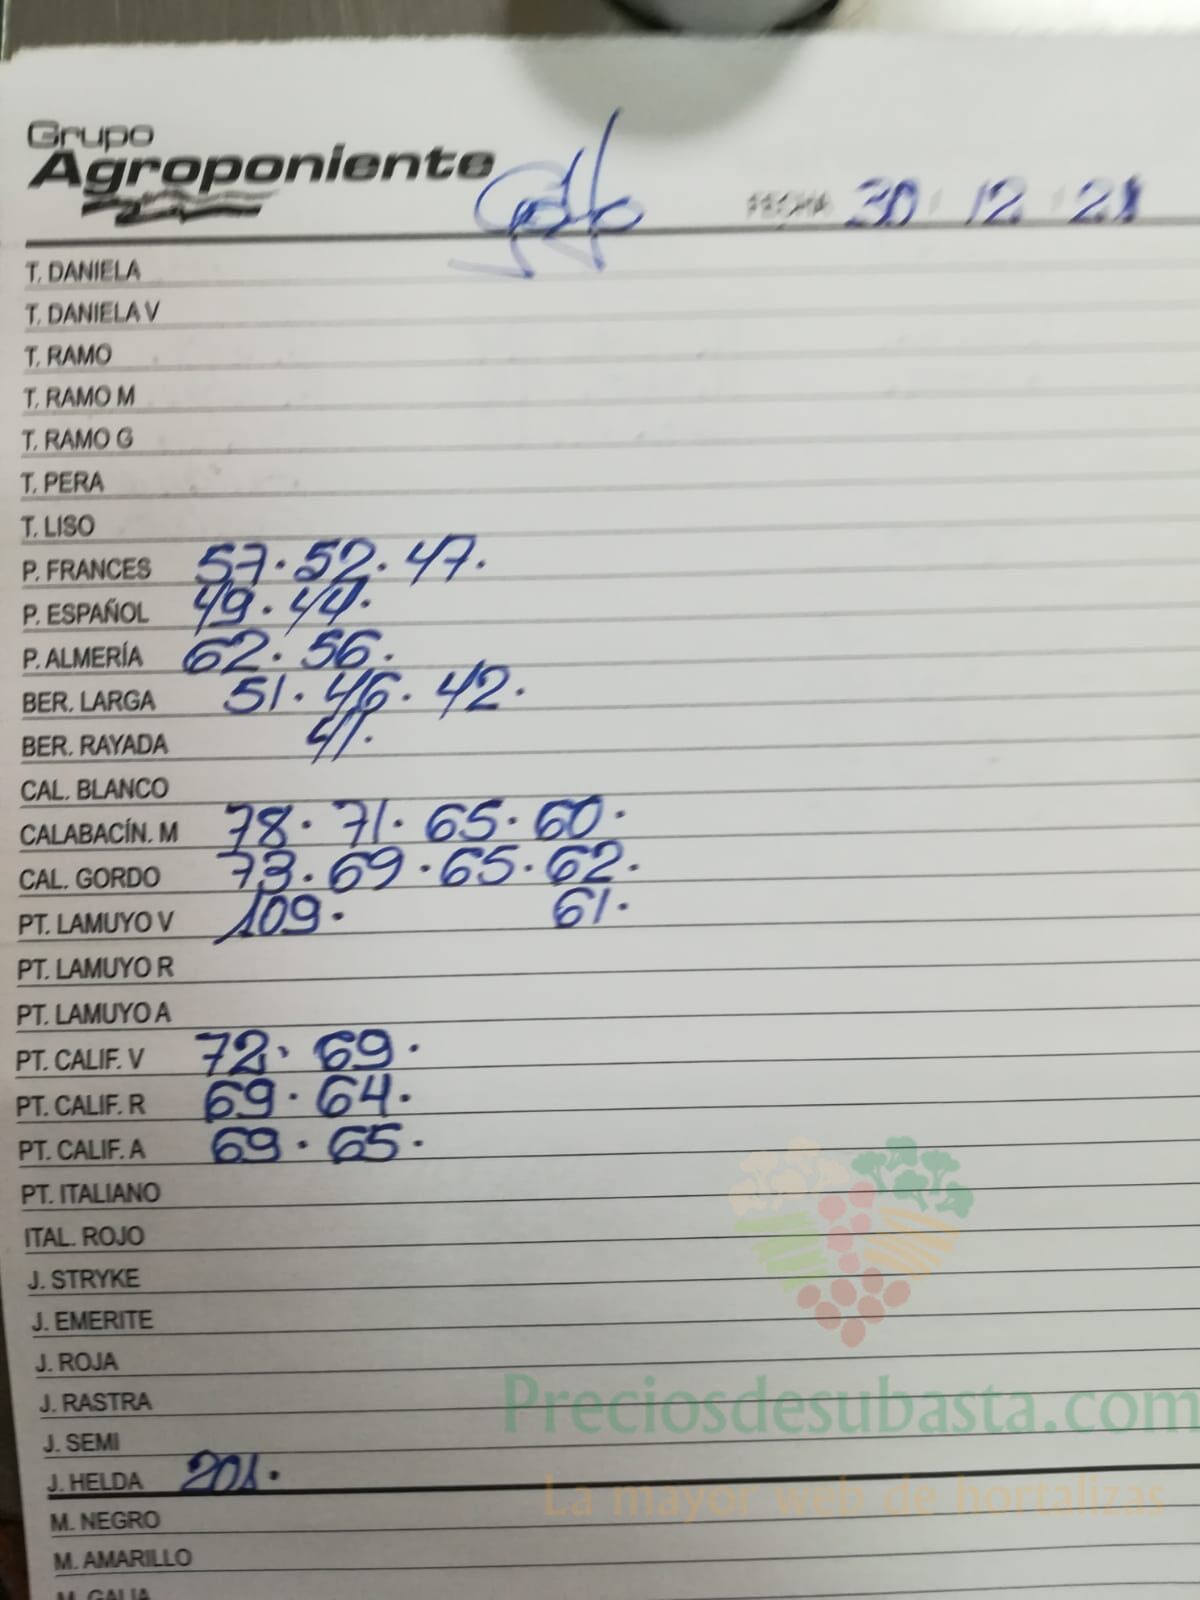 Grupo
Agroponiente
FECHA 30 12 21
T. DANIELA
T. DANIELA V
T. RAMO
T. RAMO M
T. RAMO G
T. PERA
T. LISO
P. FRANCES 57. 52. 47.
P. ESPAÑOL 49. 44.
P. ALMERÍA 62. 56.
BER. LARGA 51. 46. 42.
BER. RAYADA 41.
CAL. BLANCO
CALABACÍN. M 78. 71. 65. 60.
CAL. GORDO 73. 69. 65. 62.
PT. LAMUYO V 109. 61.
PT. LAMUYO R
PT. LAMUYO A
PT. CALIF. V 72. 69.
PT. CALIF. R 69. 64.
PT. CALIF. A 69. 65.
PT. ITALIANO
ITAL. ROJO
J. STRYKE
J. EMERITE
J. ROJA
J. RASTRA
J. SEMI
J. HELDA 201.
M. NEGRO
M. AMARILLO
M. GALIA
Preciosdesubasta.com
La mayor web de hortalizas